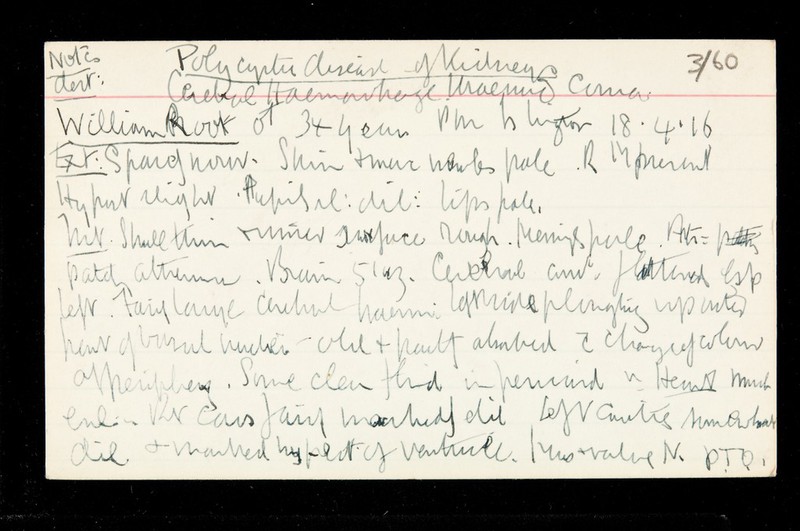 Notes Polycystic disease of Kidneys 3/60
dext: Cerebral Haemorrhage. Uraemic Coma.
William Root 34 years 18.4.16
Ext: Spare nour. Skin + muc pale. R M present
Hypost slight. Pupils dil: lips pale.
Int. Skull thin + inner surface rough. Meninges pale.
patch atheroma. Brain 51 oz. Cerebral conv. flattened esp
left. Fairly large cerebral haem: left side ploughing up outer
part of basal nuclei - old + partly absorbed c change of colour
at periphery. Some clear fluid in pericard Heart much
Vent cavs fairly markedly dil left cavity somewhat
dil. + marked hypert. of ventricle. valve N. P.T.O.